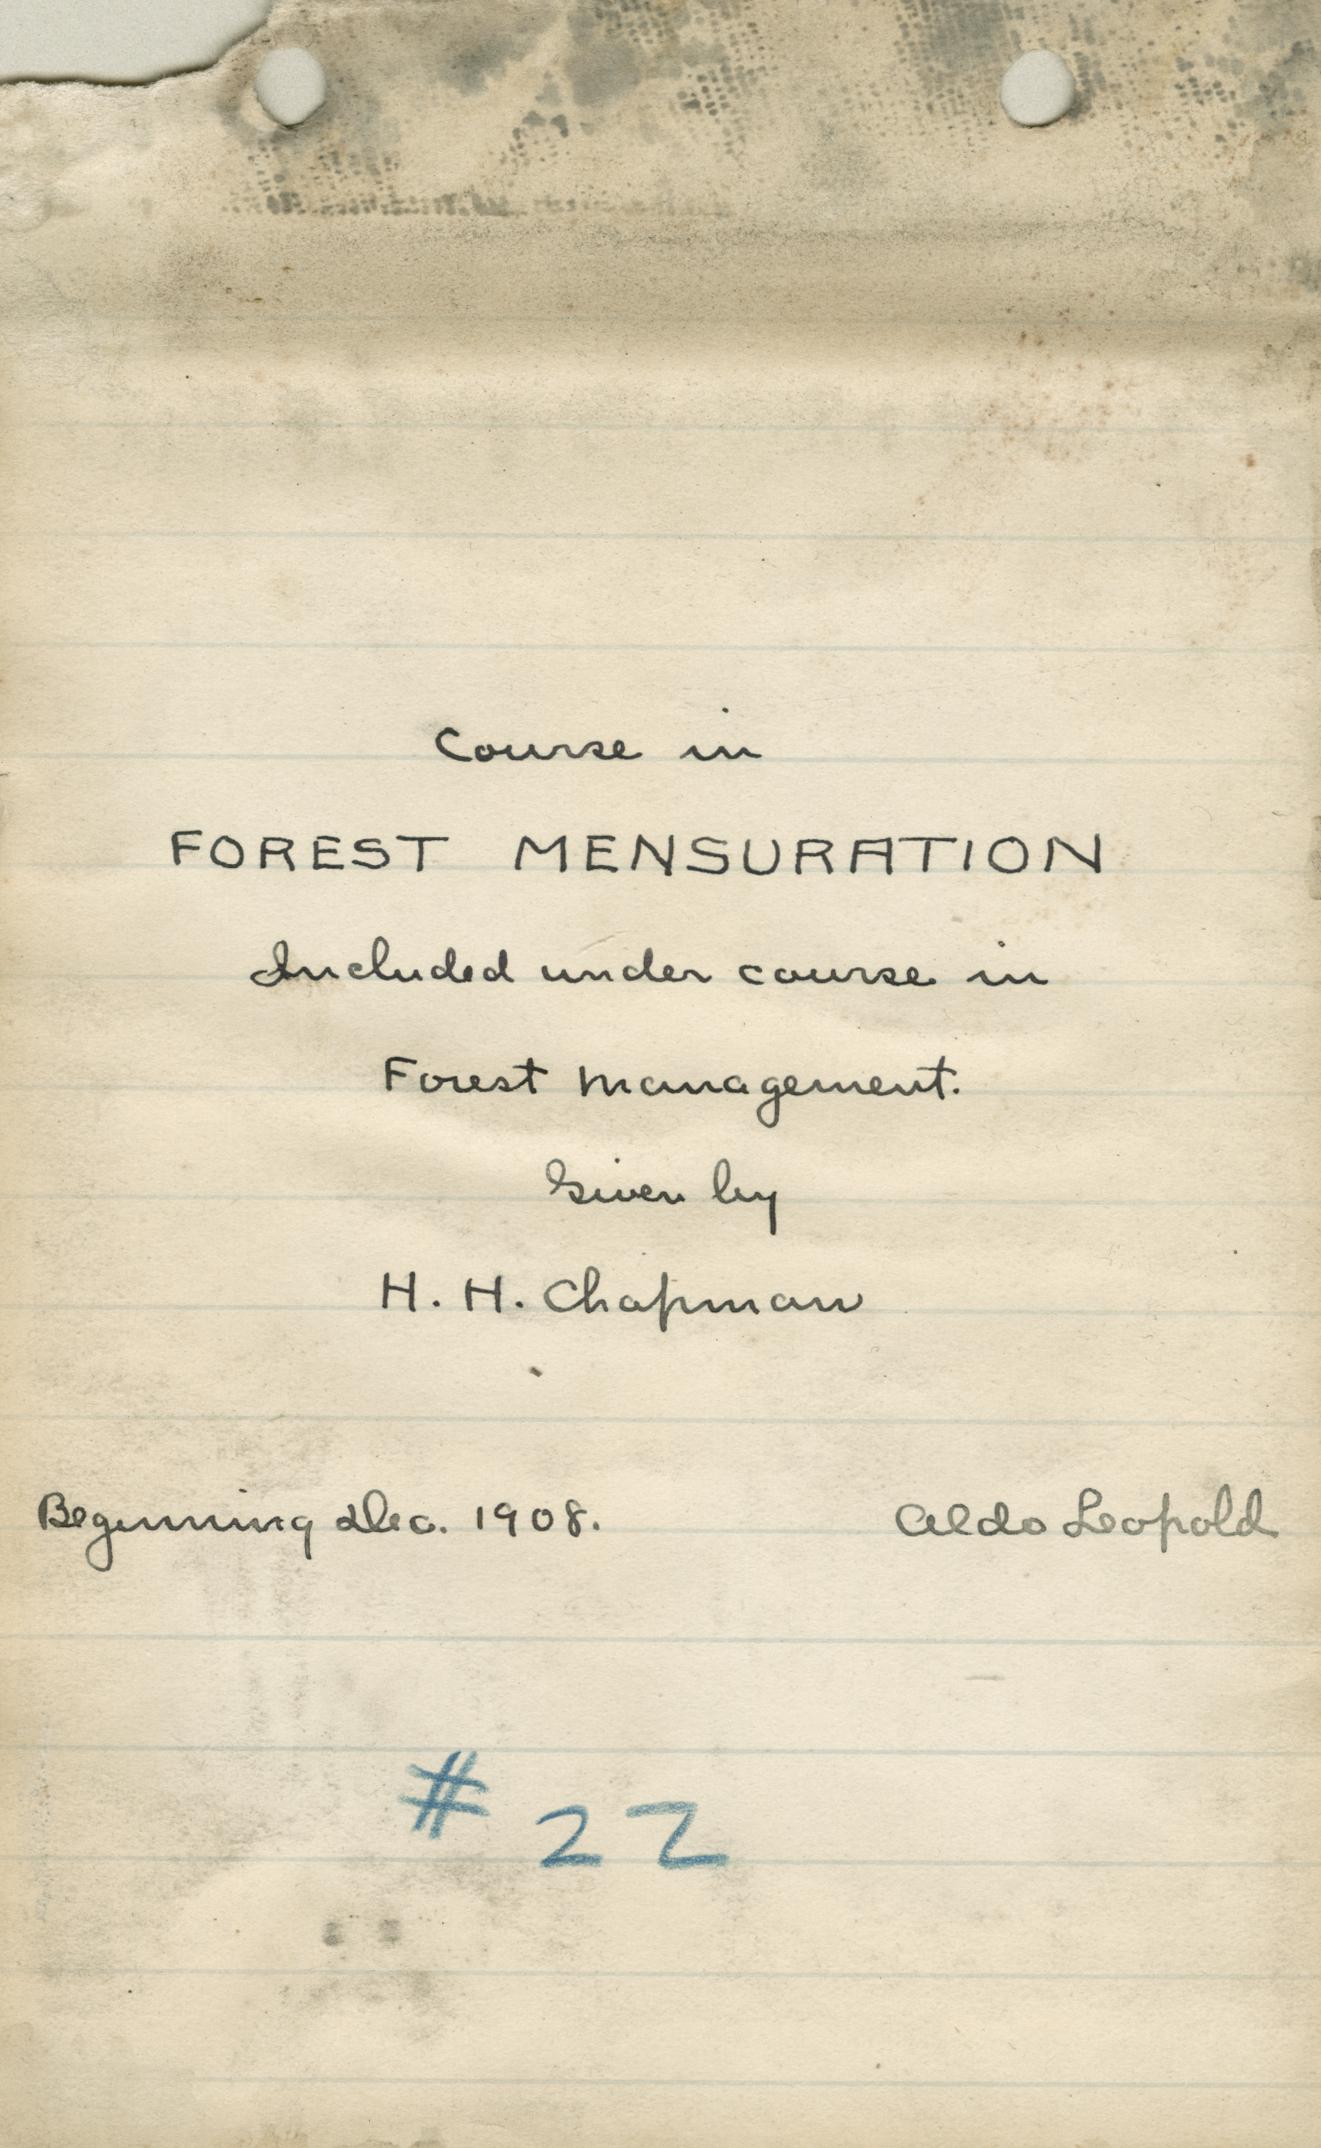 Course in
FOREST MENSURATION
Included under course in
Forest Management.
Given by
H. H. Chapman
Beginning Dec. 1908. Aldo Leopold
# 22